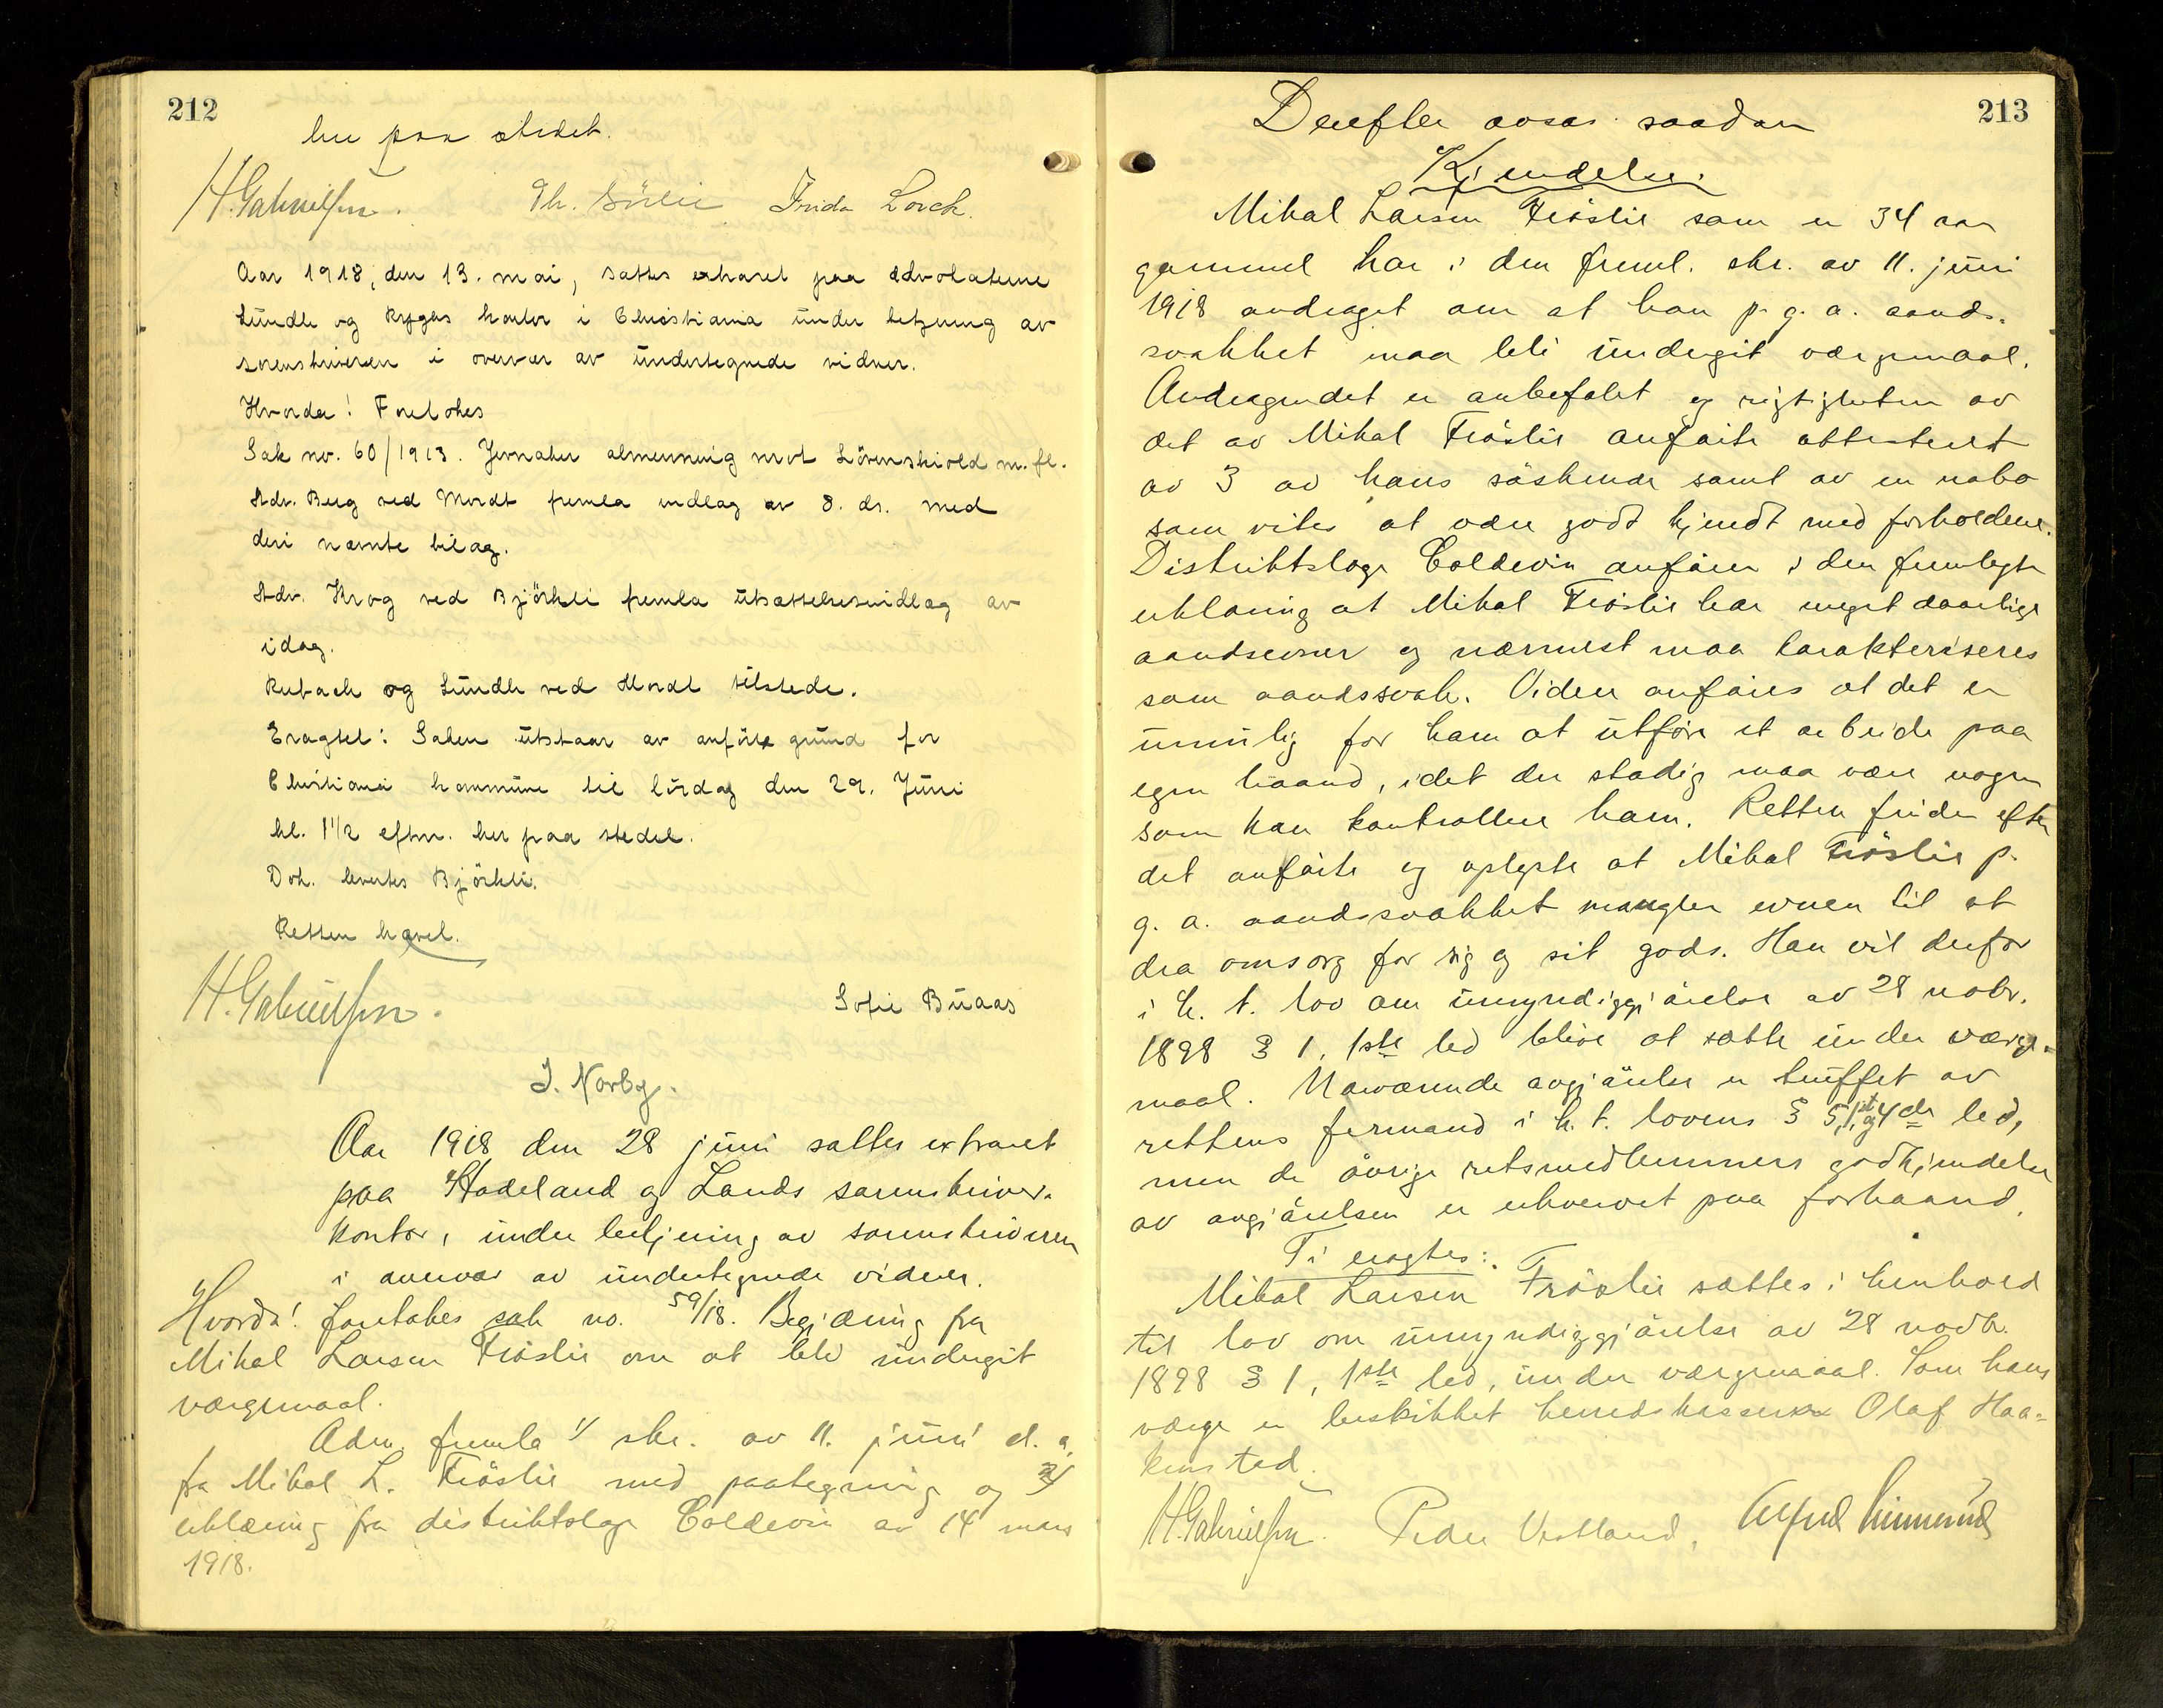 212
her paa stedet.
H. Gabrielsen. Th. Sörlie Frida Lorck.
Aar 1918, den 13. mai, sattes exharet paa advokaterne
Lundh og Kroghs kontor i Christiania under betjening av
sorenskriveren i overvær av undertegnede vidner.
Hvorda! Foretokes
Sak nr. 60/1913. Jevnaker almenning mot Lövenskiold m. fl.
Adv. Berg ved Mordt fremla indlæg av 8. ds. med
deri nævnte bilag.
Adv. Krog ved Björkli fremla utsættelsesindlæg av
idag.
Rubach og Lundh ved Mordt tilstede.
Eragtet: Saken utstaar av anförte grund for
Christiania kommune til lördag den 29. Juni
kl. 1 1/2 eftm. her paa stedet.
Dok. levertes Björkli.
Retten hævet.
H. Gabrielsen.
Sofie Buaas
J. Norby.
Aar 1918 den 28 juni sattes extraret
paa Hadeland og Lands sorenskriver-
kontor, under betjening av sorenskriveren
i overvær av undertegnede vidner.
Hvorda! foretokes sak no. 59/18. Begjæring fra
Mikal Larsen Fröslie om at bli undergit
værgemaal.
Adm. fremla 1/ skr. av 11. juni d. a.
fra Mikal L. Fröslie med paategning og 2/
erklæring fra distriktslæge Coldevin av 14 mars
1918.
213
Derefter avsas saadan
Kjendelse:
Mikal Larsen Fröslie som er 34 aar
gammel har i den freml. skr. av 11. juni
1918 andraget om at han p. g. a. aands-
svakhet maa bli undergit værgemaal.
Andragendet er anbefalet og rigtigheten av
det av Mikal Fröslie anförte attestert
av 3 av hans söskende samt av en nabo
som vites at være godt kjendt med forholdene.
Distriktslæge Coldevin anförer i den fremlegte
erklæring at Mikal Fröslie har meget daarlige
aandsevner og nærmest maa karakteriseres
som aandssvak. Videre anföres at det er
umulig for ham at utföre et arbeide paa
egen haand, idet der stadig maa være nogen
som kan kontrollere ham. Retten finder efter
det anförte og oplyste at Mikal Fröslie p.
g. a. aandssvakhet mangler evnen til at
dra omsorg for sig og sit gods. Han vil derfor
i h. t. lov om umyndiggjörelse av 28 nobr.
1898 § 1, 1ste led blive at sætte under værge-
maal. Nærværende avgjörelse er truffet av
rettens formand i h. t. lovens § 5, 1st og 4de led,
men de övrige retsmedlemmers godkjendelse
av avgjörelsen er erhvervet paa forhaand.
Ti eragtes:
Mikal Larsen Fröslie sættes i henhold
til lov om umyndiggjörelse av 28 novbr.
1898 § 1, 1ste led, under værgemaal. Som hans
værge er beskikket herredskasserer Olaf Haa-
kenstad.
H. Gabrielsen. Peder Vestland, Alfred Linnerud